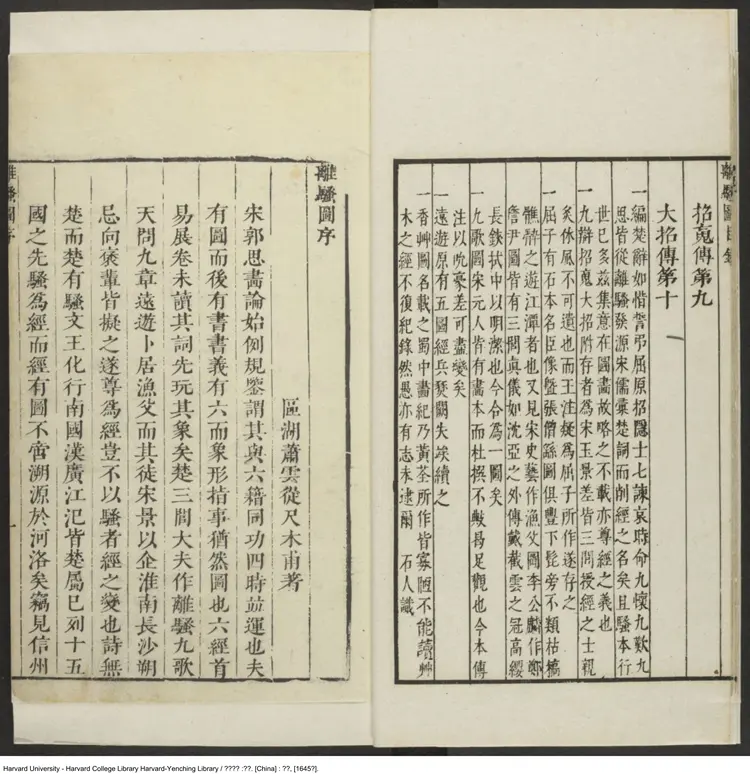 離騷圖目錄
招䰟傳第九
大招傳第十
一編楚辭如惜誓弔屈原招隱士七諫哀時命九懷九歎九
思皆從離騷發源宋儒彙楚詞而削經之名矣且騷本行
世已多玆集意在圖畵故略之不載亦尊經之義也
一九辯招䰟大招附存者為宋玉景差皆三閭授經之士親
炙休風不可遺也而王注擬為屈子所作遂存之
一屈子有石本名臣像暨張僧繇圖俱豐下髭旁不類枯槁
憔悴之遊江潭者也又見宋史藝作漁父圖李公麟作鄭
詹尹圖皆有三閭真儀如沈亞之外傳戴截雲之冠高纓
長鋏拭巾以明潔也今合為一圖矣
一九歌圖宋元人皆有畵本而杜撰不典㝵足觀也今本傳
注以吮豪差可盡變矣
一遠遊原有五圖經兵燹闕失竢續之
一香艸圖名載之蜀中畵紀乃黃荃所作皆寡陋不能讀艸
木之經不復紀錄然愚亦有志未逮爾　石人識
離騷圖序
區湖蕭雲從尺木甫著
宋郭思畵論始例規鑒謂其與六籍同功四時竝運也夫
有圖而後有書書義有六而象形指事猶然圖也六經首
易展卷未讀其詞先玩其象矣楚三閭大夫作離騷九歌
天問九章遠遊卜居漁父而其徒宋景以企淮南長沙朔
忌向襃輩皆擬之遂尊為經豈不以騷者經之變也詩無
楚而楚有騷文王化行南國漢廣江汜皆楚屬已列十五
國之先騷為經而經有圖不啻溯源於河洛矣竊見信州
離騷圖序
一
Harvard University - Harvard College Library Harvard-Yenching Library / ???? :??. [China] : ??, [1645?].